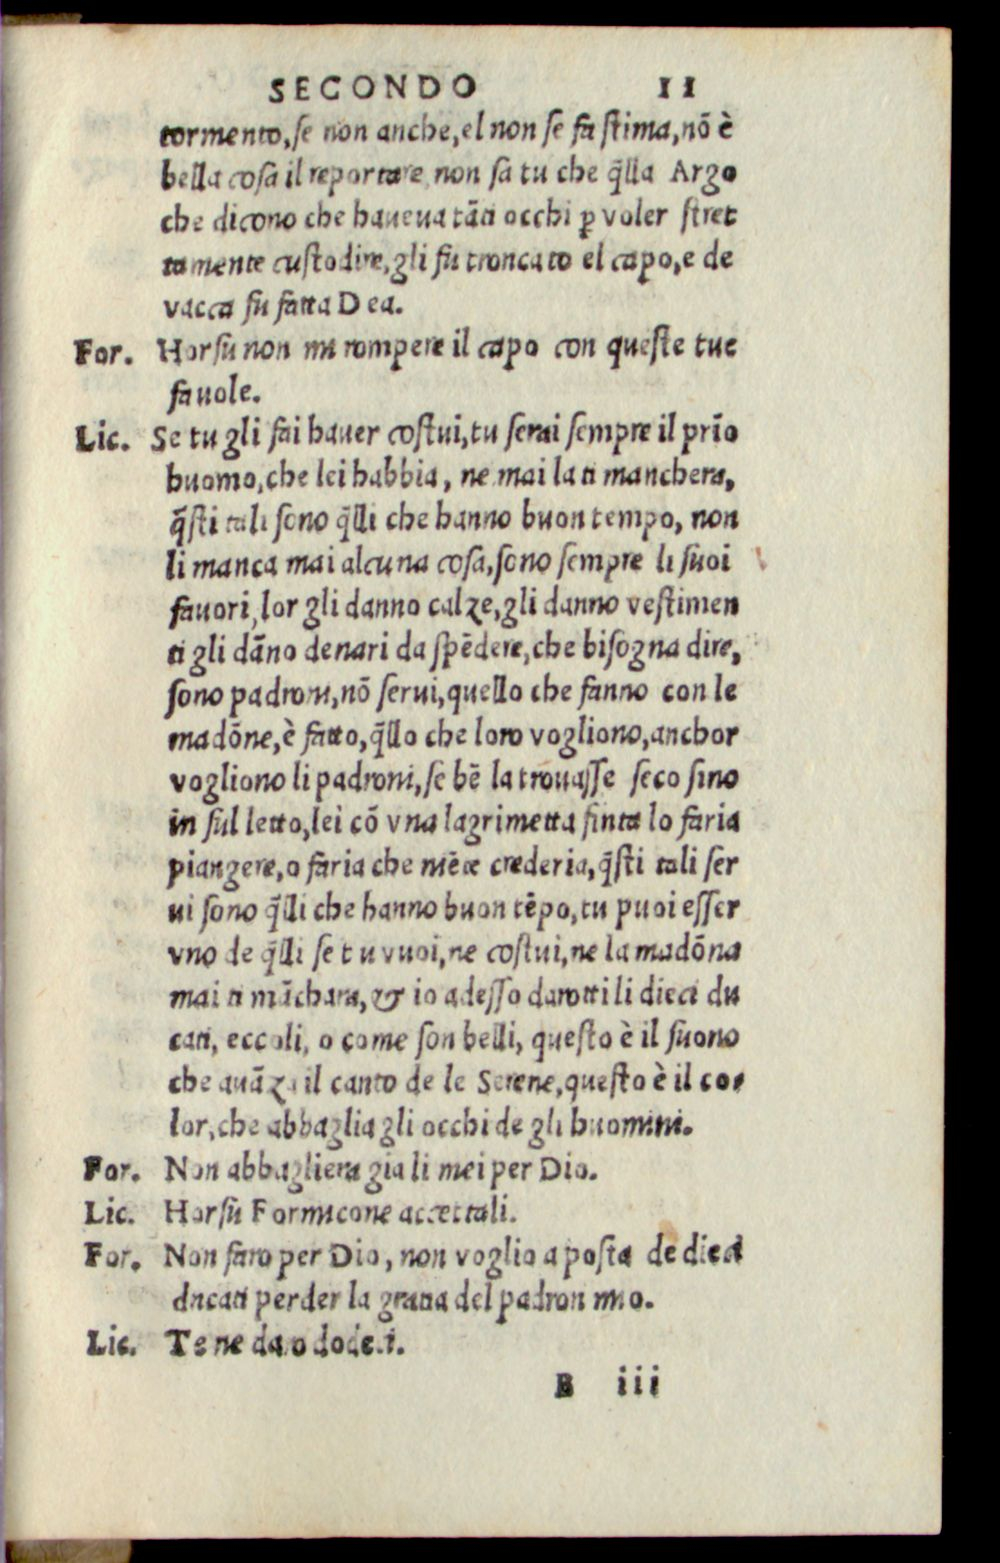 SECONDO 11
tormento, se non anche, el non se fa stima, nõ è
bella cosa il reportare non sa tu che q̃lla Argo
che dicono che haueua tãti occhi ꝑ voler stret
tamente custodire, gli fu troncato el capo, e de
vacca fu fatta Dea.
For. Horsu non mi rompere il capo con queste tue
fauole.
Lic. Se tu gli fai hauer costui, tu serai sempre il prĩo
huomo, che lei habbia, ne mai la ti manchera,
q̃sti tali sono q̃lli che hanno buon tempo, non
li manca mai alcuna cosa, sono sempre li suoi
fauori, lor gli danno calze, gli danno vestimen
ti gli dãno denari da spẽdere, che bisogna dire,
sono padroni, nõ serui, quello che fanno con le
madõne, è fatto, q̃llo che loro vogliono, anchor
vogliono li padroni, se bẽ la trouasse seco sino
in sul letto, lei cõ vna lagrimetta finta lo faria
piangere, o faria che niẽte crederia, q̃sti tali ser
ui sono q̃lli che hanno buon tẽpo, tu puoi esser
vno de q̃lli se tu vuoi, ne costui, ne la madõna
mai ti mãchara, & io adesso darotti li dieci du
cati, eccoli, o come son belli, questo è il suono
che auãza il canto de le Serene, questo è il co
lor, che abbaglia gli occhi de gli huomini.
For. Non abbagliera gia li mei per Dio.
Lic. Horsu Formicone accettali.
For. Non faro per Dio, non voglio a posta de dieci
ducati perder la gratia del padron mio.
Lic. Te ne daro dodeci.
B iii